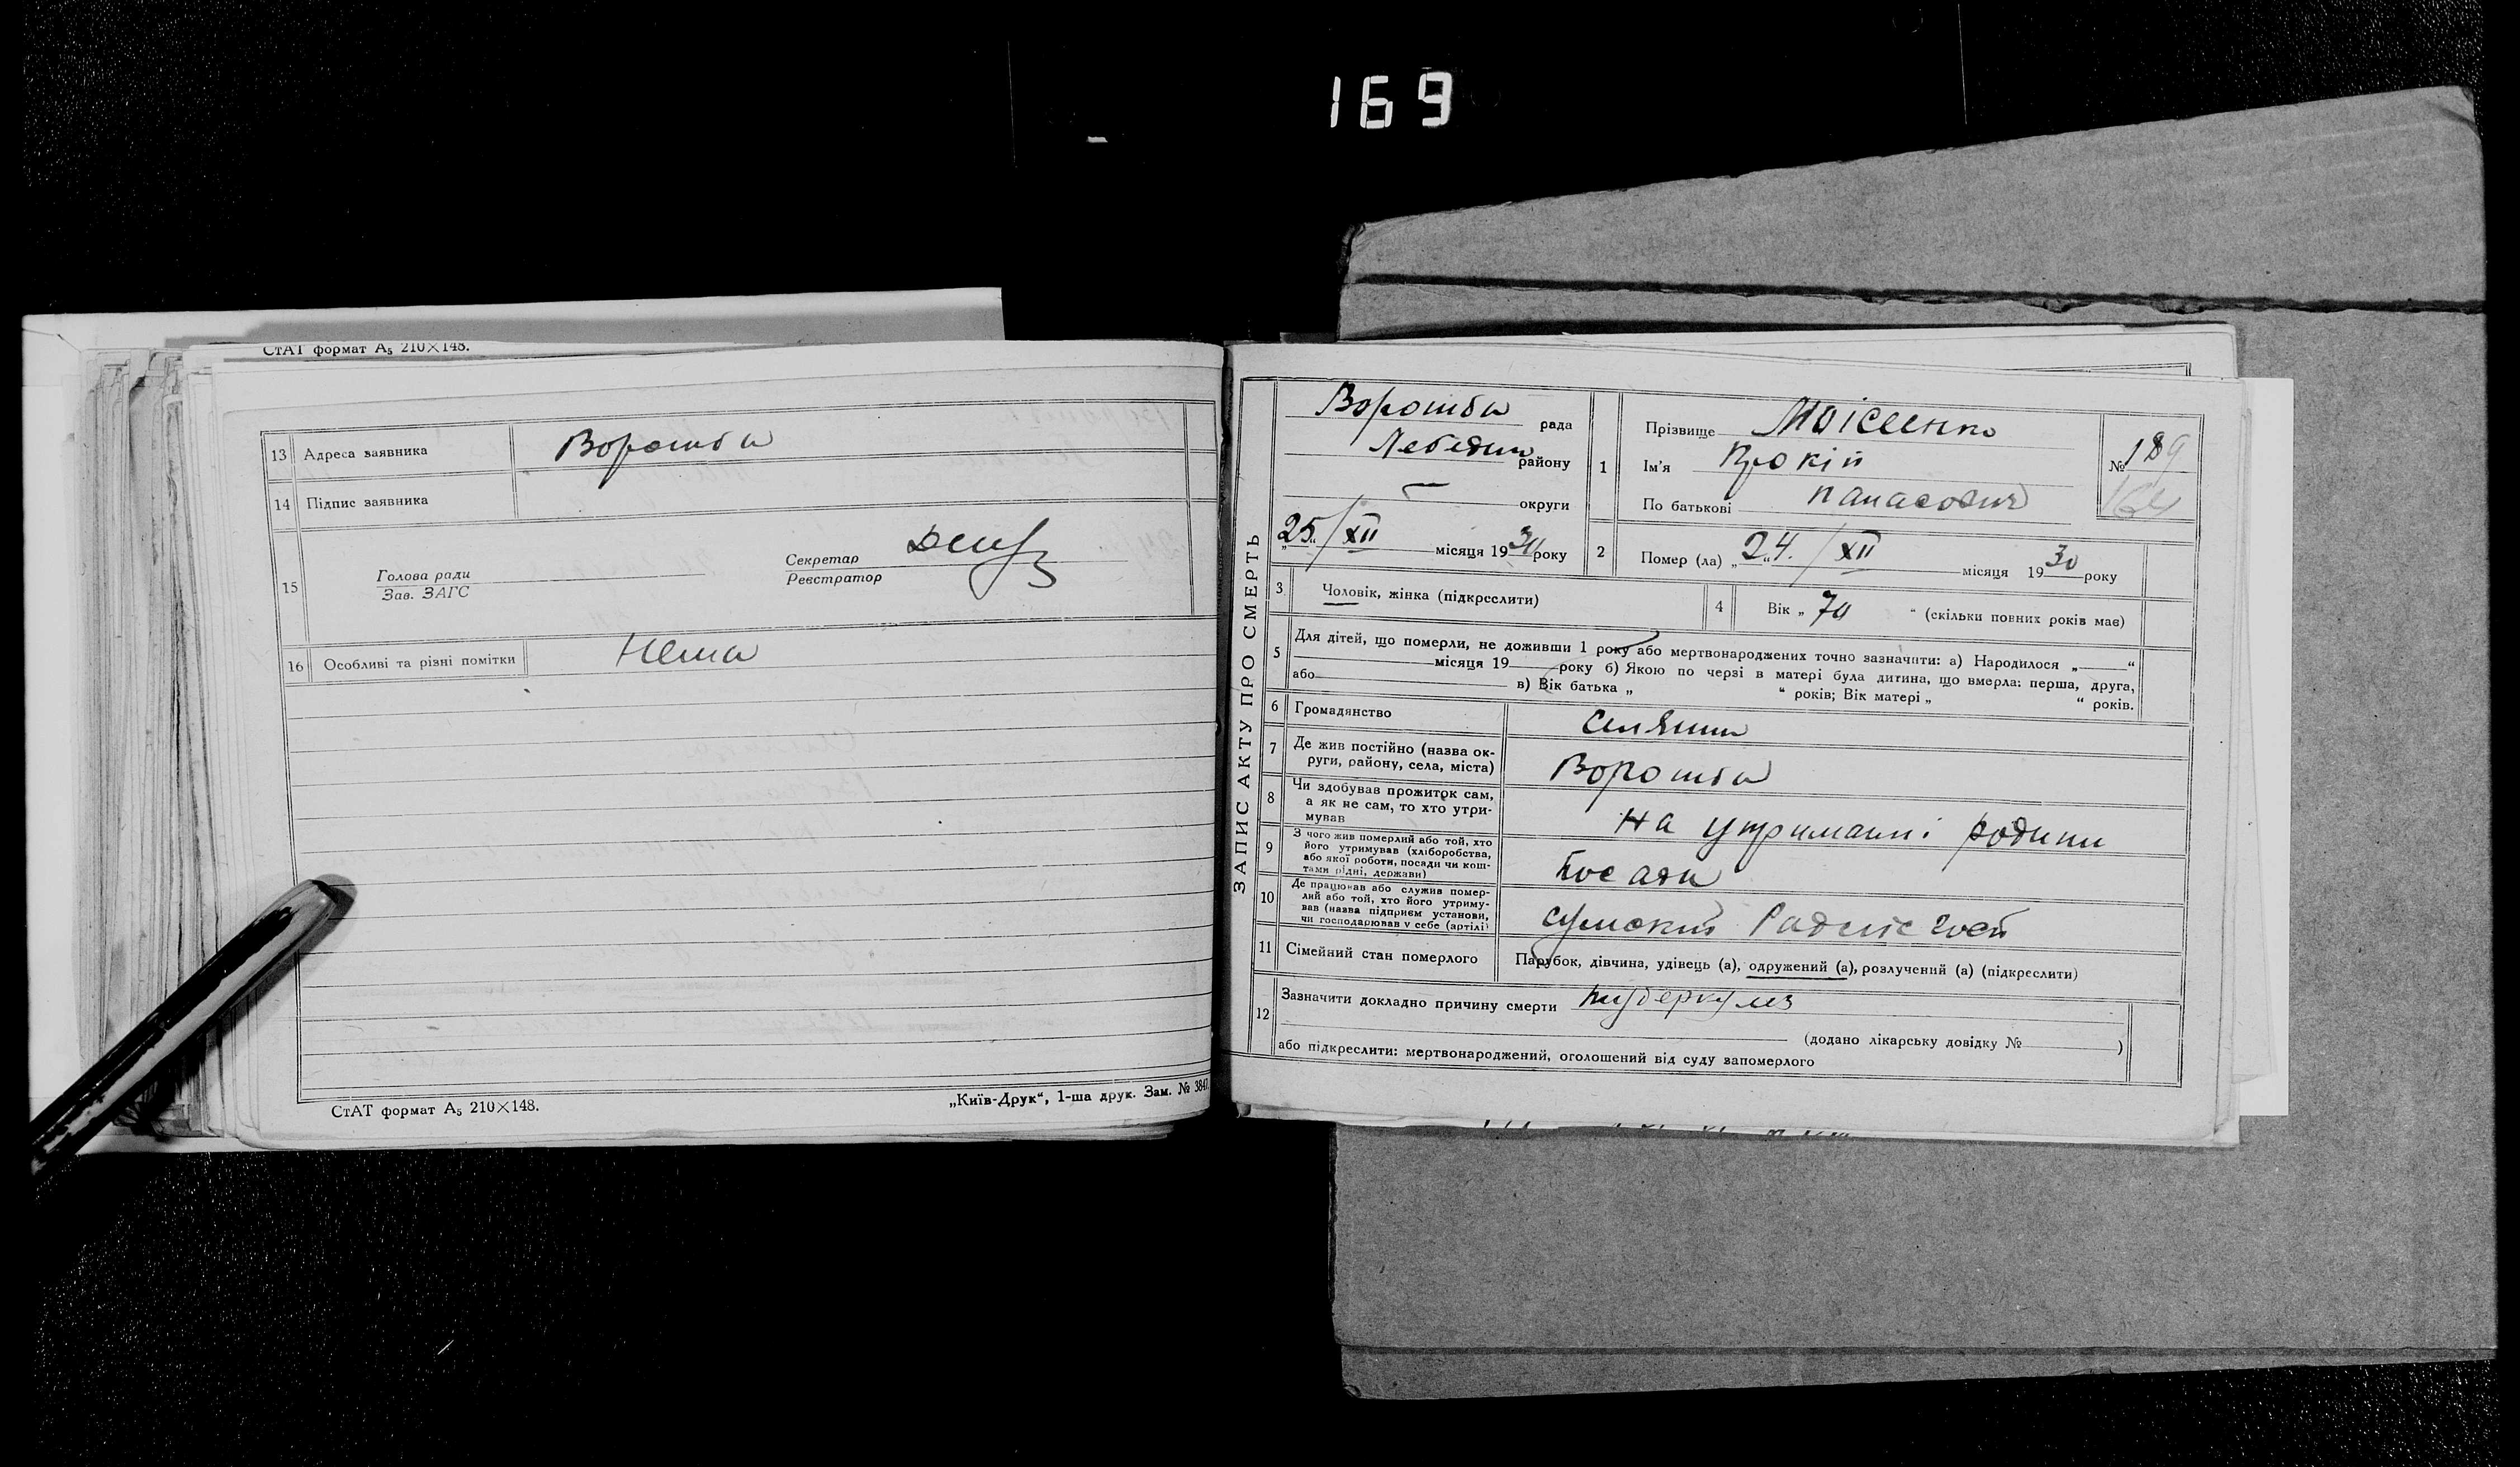 169
СтАТ формат А5 210×148.
13 Адреса заявника Ворожба
14 Підпис заявника
15 Голова ради
Зав. ЗАГС
Секретар
Реєстратор
16 Особливі та різні помітки Нема
СтАТ формат А5 210×148.
„Київ-Друк“, 1-ша друк. Зам. № 3847
ЗАПИС АКТУ ПРО СМЕРТЬ
Ворожба рада
Лебедин району
— округи
„25“/XII місяця 1930 року
1 Прізвище Моісеенко
Ім'я Прокіп
По батькові Панасович
№ 189
164
2 Помер (ла) „24“./XII місяця 1930 року
3 Чоловік, жінка (підкреслити)
4 Вік „70“ (скільки повних років має)
5 Для дітей, що померли, не доживши 1 року або мертвонароджених точно зазначити: а) Народилося „ “
місяця 19 року б) Якою по черзі в матері була дитина, що вмерла: перша, друга,
або в) Вік батька „ “ років; Вік матері „ “ років.
6 Громадянство селянин
7 Де жив постійно (назва ок-
руги, району, села, міста) Ворожба
8 Чи здобував прожиток сам,
а як не сам, то хто утри-
мував На утриманні родини
9 З чого жив померлий або той, хто
його утримував (хліборобства,
або якої роботи, посади чи кош-
тами рідні, держави) Посади
10 Де працював або служив помер-
лий або той, хто його утриму-
вав (назва підприєм установи,
чи господарював у себе (артілі) Сумский
11 Сімейний стан померлого Парубок, дівчина, удівець (а), одружений (а), розлучений (а) (підкреслити)
12 Зазначити докладно причину смерти туберкульз
(додано лікарську довідку № )
або підкреслити: мертвонароджений, оголошений від суду запомерлого